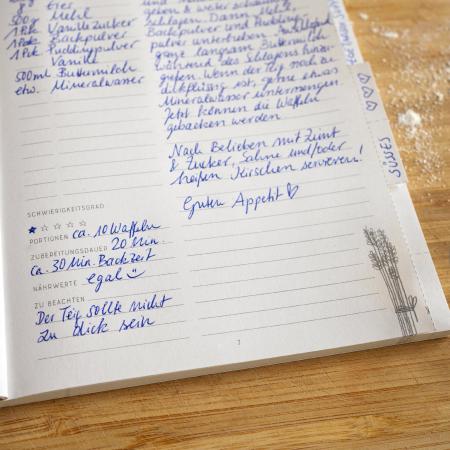 8 Eier
500g Mehl
1 Pck. Vanillzucker
1 Pck. Backpulver
1 Pck. Puddingpulver
Vanille
500ml Buttermilch
etw. Mineralwasser
schlagen. Dann Mehl,
Backpulver und Pudding-
pulver unterheben. Anschließend
ganz langsam Buttermilch
während des Schlagens hinzu-
gießen. Wenn der Teig noch zu
dickflüssig ist, gehe etwas
Mineralwasser untermengen.
Jetzt können die Waffeln
gebacken werden.
Nach Belieben mit Zimt
& Zucker, Sahne und/oder
heißen Kirschen servieren!
Guten Appetit ♡
SCHWIERIGKEITSGRAD
★ ☆ ☆ ☆ ☆
PORTIONEN ca. 10 Waffeln
ZUBEREITUNGSDAUER 20 Min.
ca. 30 Min. Backzeit
NÄHRWERTE egal
ZU BEACHTEN
Der Teig sollte nicht
zu dick sein
7
SÜSSES ♡ ♡ ♡